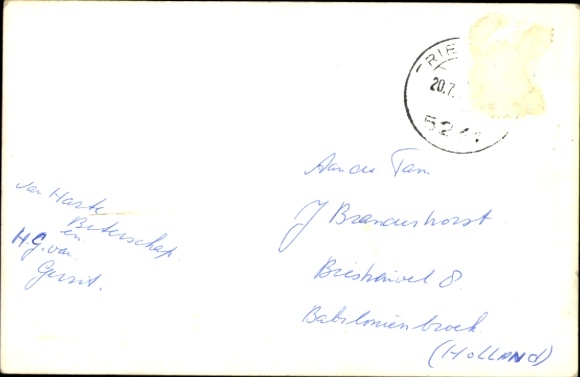 RIE
20.7.
524
van Harte
Beterschap
en
H.G. van
Gerrit.
Aan de Fam
J Branderhorst
8
Babilonienbroek
(HOLLAND)